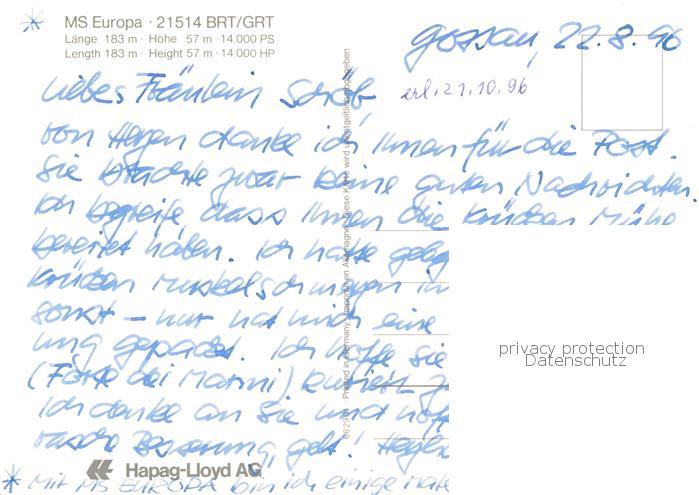 MS Europa · 21514 BRT/GRT
Länge 183 m · Höhe 57 m · 14.000 PS
Length 183 m · Height 57 m · 14.000 HP
Gossau, 22.8.96
erl. 21.10.96
Liebes Fräulein Schöb
von Herzen danke ich Ihnen für die Post.
Sie brachte zwar keine guten Nachrichten.
Ich begreife dass Ihnen die Mühe
bereitet haben. Ich hatte
Muskelschmerzen
sonst - nur hat mich eine
ung gepackt. Ich hoffe Sie
(Forte dei Marmi)
Ich denke an Sie und hoff
rasche Besserung geht! Herzl
privacy protection
Datenschutz
Hapag-Lloyd AG
* Mit MS EUROPA bin ich einige Male
Printed in Germany